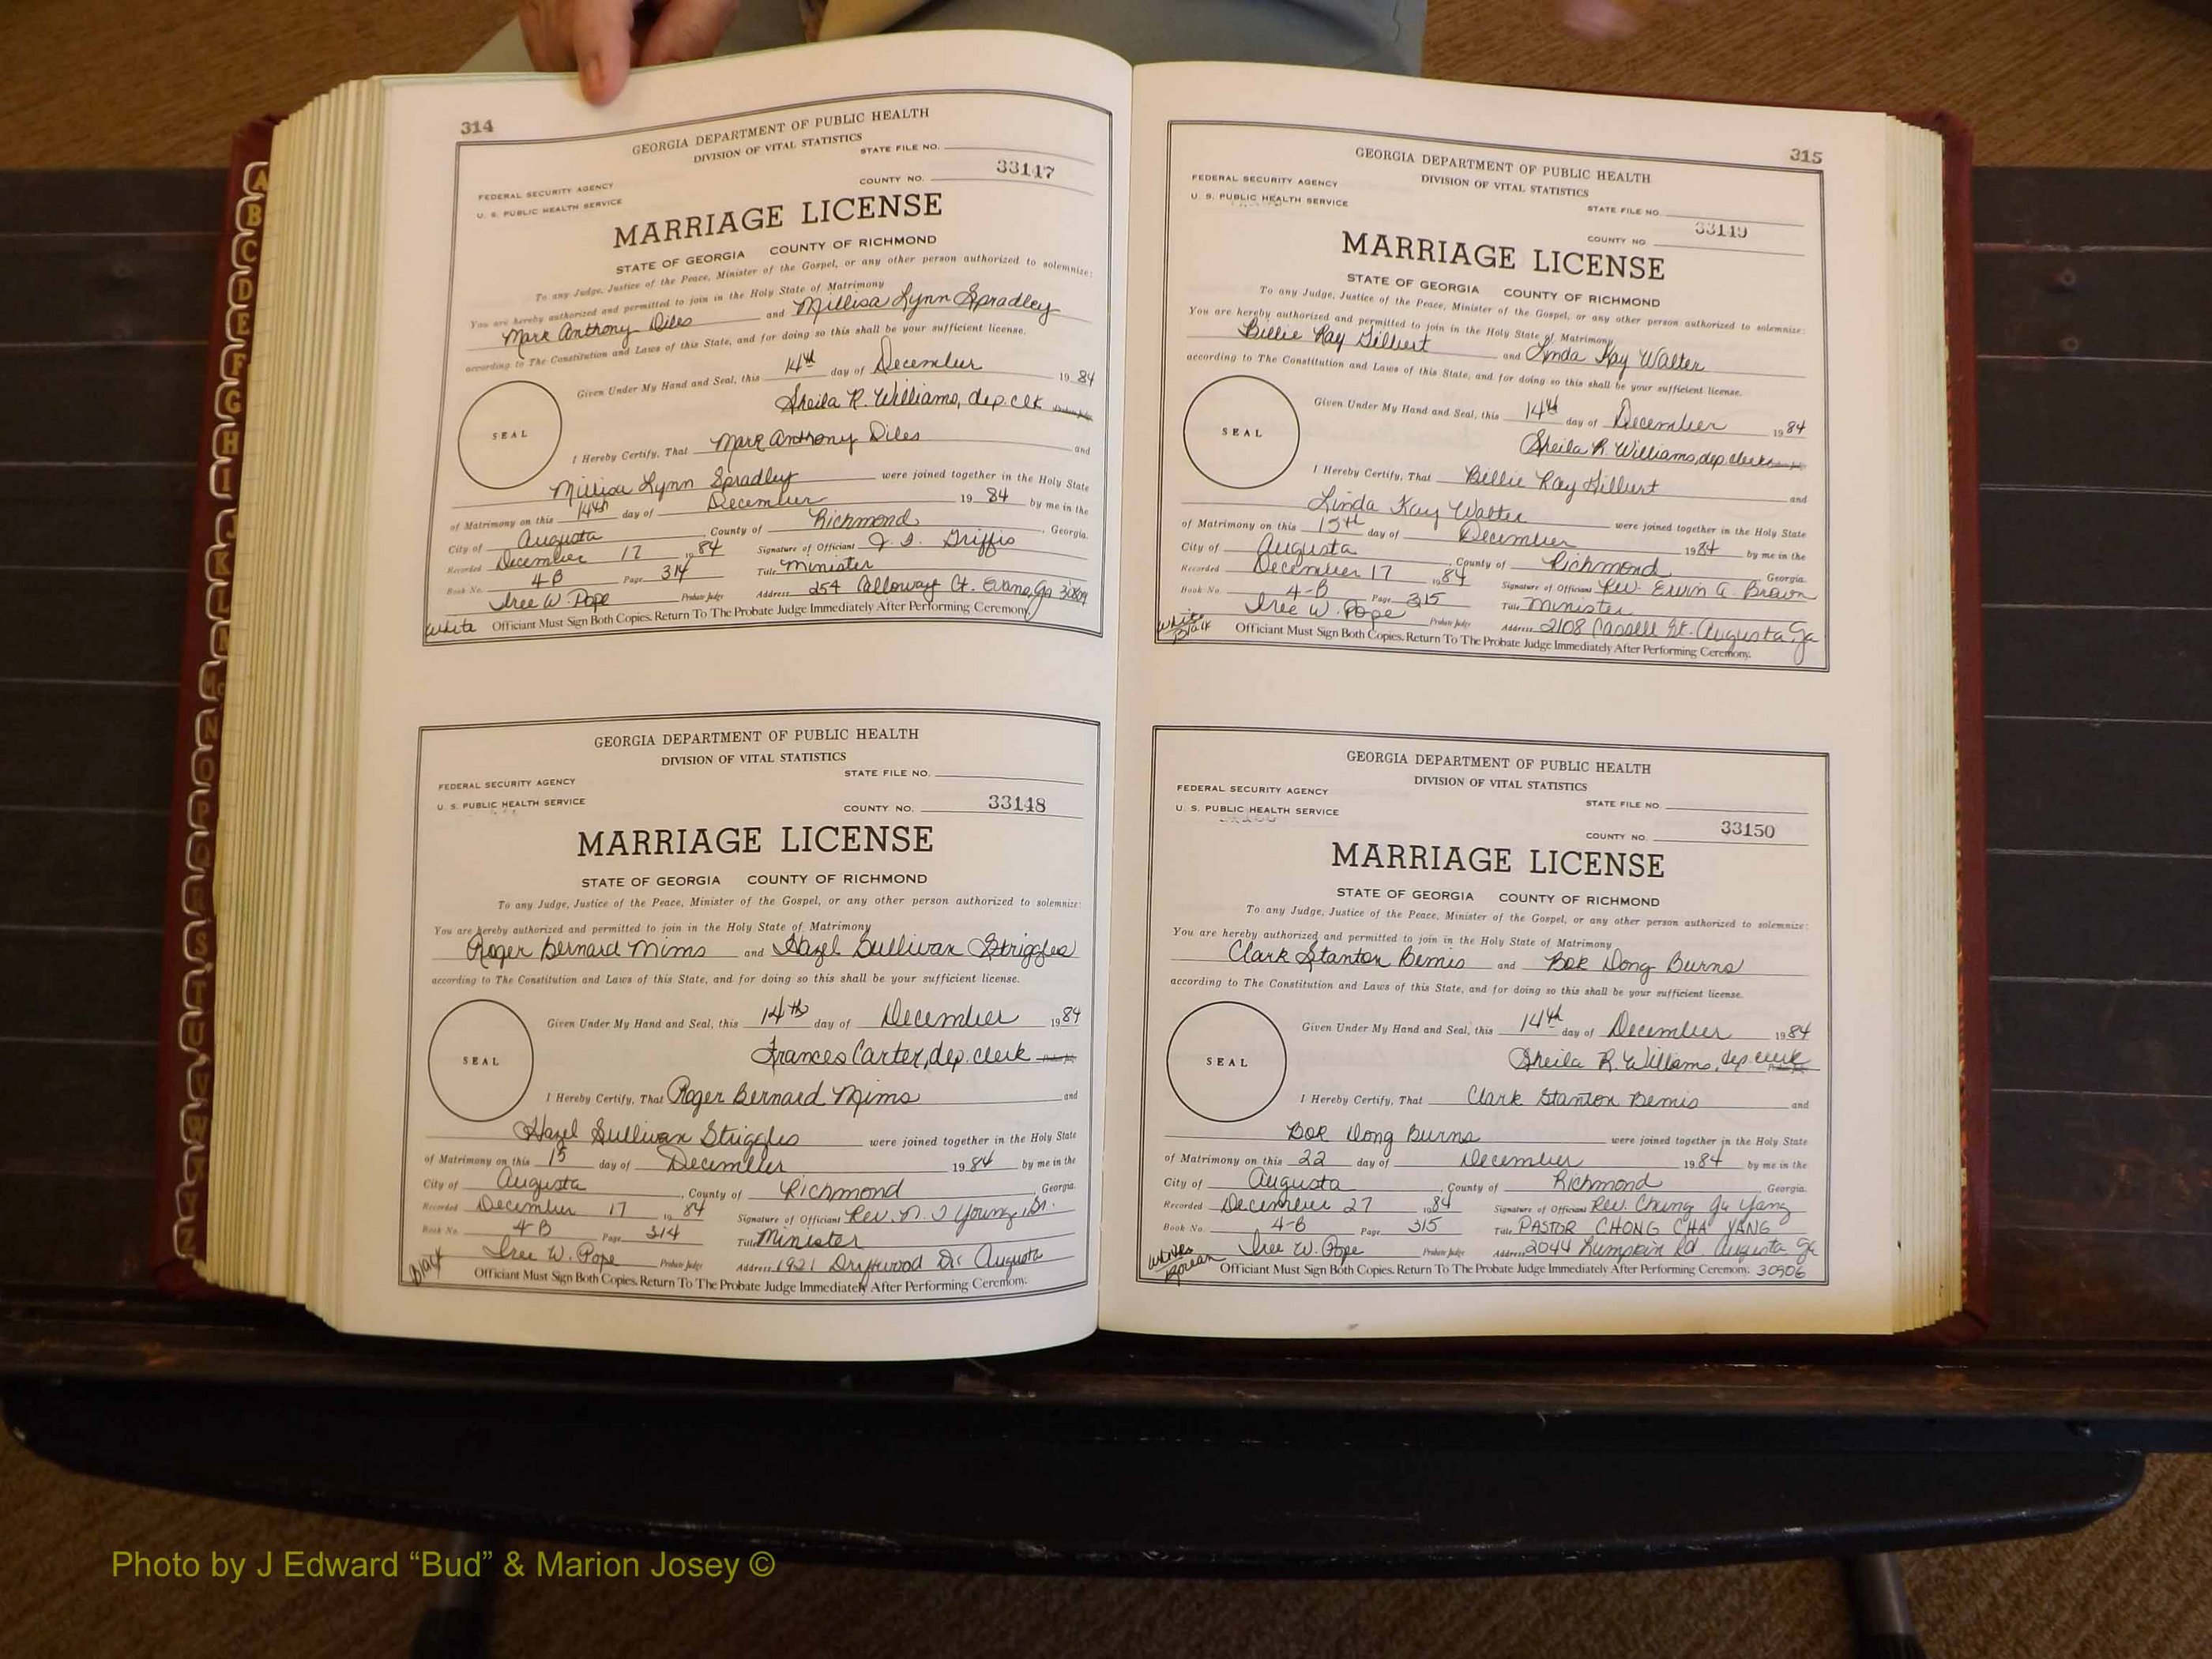 314
GEORGIA DEPARTMENT OF PUBLIC HEALTH
DIVISION OF VITAL STATISTICS
STATE FILE NO.
FEDERAL SECURITY AGENCY
U. S. PUBLIC HEALTH SERVICE
COUNTY NO. 33147
MARRIAGE LICENSE
STATE OF GEORGIA COUNTY OF RICHMOND
To any Judge, Justice of the Peace, Minister of the Gospel, or any other person authorized to solemnize:
You are hereby authorized and permitted to join in the Holy State of Matrimony
Mark Anthony Diles and Millisa Lynn Spradley
according to The Constitution and Laws of this State, and for doing so this shall be your sufficient license.
Given Under My Hand and Seal, this 14th day of December 1984
Sheila R. Williams, dep. clk
SEAL
I Hereby Certify, That Mark Anthony Diles and
Millisa Lynn Spradley were joined together in the Holy State
of Matrimony on this 14th day of December 1984 by me in the
City of Augusta, County of Richmond, Georgia.
Recorded December 17 1984 Signature of Officiant J. Griffis
Book No. 4-B Page 314 Title Minister
Iree W. Pope Probate Judge Address 254 Calloway Ct. Evans, Ga 30809
White Officiant Must Sign Both Copies. Return To The Probate Judge Immediately After Performing Ceremony.
GEORGIA DEPARTMENT OF PUBLIC HEALTH
DIVISION OF VITAL STATISTICS
STATE FILE NO.
FEDERAL SECURITY AGENCY
U. S. PUBLIC HEALTH SERVICE
COUNTY NO. 33148
MARRIAGE LICENSE
STATE OF GEORGIA COUNTY OF RICHMOND
To any Judge, Justice of the Peace, Minister of the Gospel, or any other person authorized to solemnize:
You are hereby authorized and permitted to join in the Holy State of Matrimony
Roger Bernard Mims and Hazel Sullivan Striggles
according to The Constitution and Laws of this State, and for doing so this shall be your sufficient license.
Given Under My Hand and Seal, this 14th day of December 1984
Frances Carter, dep. clerk
SEAL
I Hereby Certify, That Roger Bernard Mims and
Hazel Sullivan Striggles were joined together in the Holy State
of Matrimony on this 15 day of December 1984 by me in the
City of Augusta, County of Richmond, Georgia.
Recorded December 17 1984 Signature of Officiant Rev. N. J Young, Sr.
Book No. 4-B Page 314 Title Minister
Iree W. Pope Probate Judge Address 1921 Driftwood Dr Augusta
Black Officiant Must Sign Both Copies. Return To The Probate Judge Immediately After Performing Ceremony.
315
GEORGIA DEPARTMENT OF PUBLIC HEALTH
DIVISION OF VITAL STATISTICS
FEDERAL SECURITY AGENCY
U. S. PUBLIC HEALTH SERVICE
STATE FILE NO.
COUNTY NO. 33149
MARRIAGE LICENSE
STATE OF GEORGIA COUNTY OF RICHMOND
To any Judge, Justice of the Peace, Minister of the Gospel, or any other person authorized to solemnize:
You are hereby authorized and permitted to join in the Holy State of Matrimony
Billie Ray Gilbert and Linda Kay Walter
according to The Constitution and Laws of this State, and for doing so this shall be your sufficient license.
Given Under My Hand and Seal, this 14th day of December 1984
Sheila R. Williams, dep. clerk
SEAL
I Hereby Certify, That Billie Ray Gilbert and
Linda Kay Walter were joined together in the Holy State
of Matrimony on this 15th day of December 1984 by me in the
City of Augusta, County of Richmond, Georgia.
Recorded December 17 1984 Signature of Officiant Rev. Ervin G. Brown
Book No. 4-B Page 315 Title Minister
Iree W. Pope Probate Judge Address 2108 Cassell St. Augusta, Ga
White Black Officiant Must Sign Both Copies. Return To The Probate Judge Immediately After Performing Ceremony.
GEORGIA DEPARTMENT OF PUBLIC HEALTH
DIVISION OF VITAL STATISTICS
FEDERAL SECURITY AGENCY
U. S. PUBLIC HEALTH SERVICE
STATE FILE NO.
COUNTY NO. 33150
MARRIAGE LICENSE
STATE OF GEORGIA COUNTY OF RICHMOND
To any Judge, Justice of the Peace, Minister of the Gospel, or any other person authorized to solemnize:
You are hereby authorized and permitted to join in the Holy State of Matrimony
Clark Stanton Bemis and Bok Dong Burns
according to The Constitution and Laws of this State, and for doing so this shall be your sufficient license.
Given Under My Hand and Seal, this 14th day of December 1984
Sheila R. Williams, dep. clerk
SEAL
I Hereby Certify, That Clark Stanton Bemis and
Bok Dong Burns were joined together in the Holy State
of Matrimony on this 22 day of December 1984 by me in the
City of Augusta, County of Richmond, Georgia.
Recorded December 27 1984 Signature of Officiant Rev. Chung Ja Yang
Book No. 4-B Page 315 Title PASTOR CHONG CHA YANG
Iree W. Pope Probate Judge Address 2044 Lumpkin Rd Augusta Ga
White Korean Officiant Must Sign Both Copies. Return To The Probate Judge Immediately After Performing Ceremony. 30906
Photo by J Edward “Bud” & Marion Josey ©